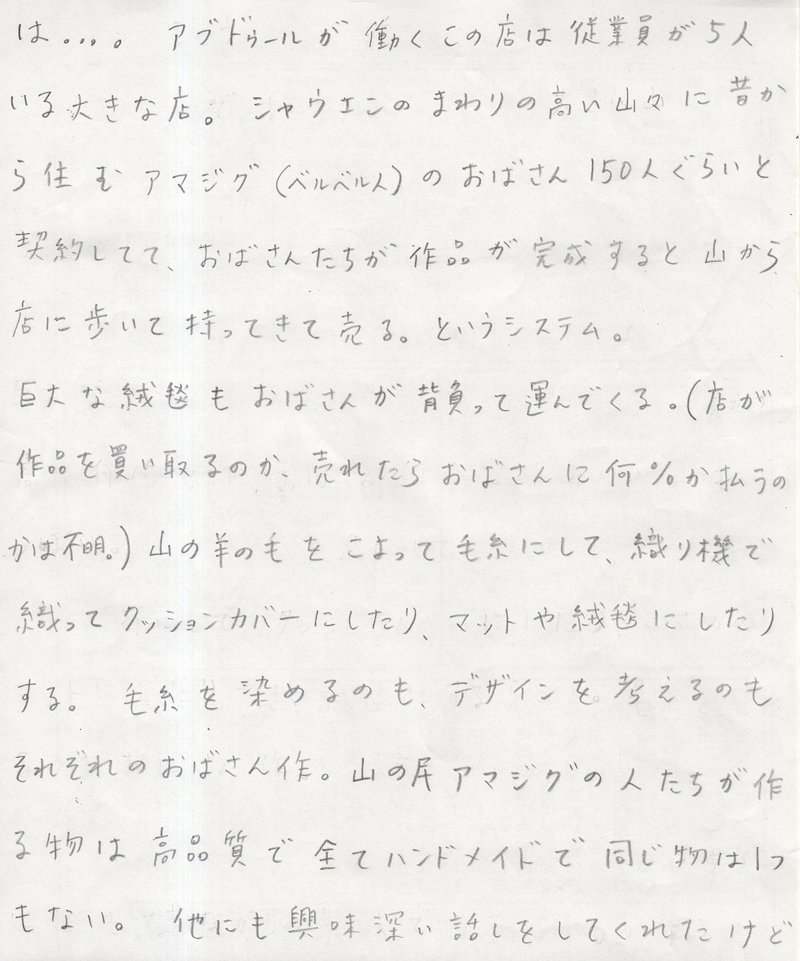 は...。 アブドゥールが 働くこの店は 従業員が5人
いる大きな店。 シャウエンのまわりの高い山々に昔か
ら住む アマジグ(ベルベル人)のおばさん 150人ぐらいと
契約してて、おばさんたちが 作品が 完成すると 山から
店に歩いて持ってきて売る。というシステム。
巨大な絨毯もおばさんが 背負って運んでくる。(店が
作品を買い取るのか、売れたらおばさんに何%か払うの
かは不明。) 山の羊の毛をこよって毛糸にして、織り機で
織ってクッションカバーにしたり、マットや絨毯にしたり
する。 毛糸を染めるのも、デザインを考えるのも
それぞれのおばさん作。山の民アマジグの人たちが作
る物は高品質で全てハンドメイドで同じ物は1つ
もない。 他にも興味深い話しをしてくれたけど